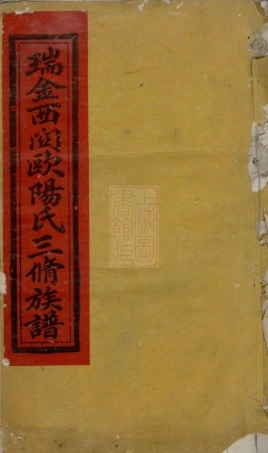 瑞金西關歐陽氏三脩族譜
上海圖書館藏